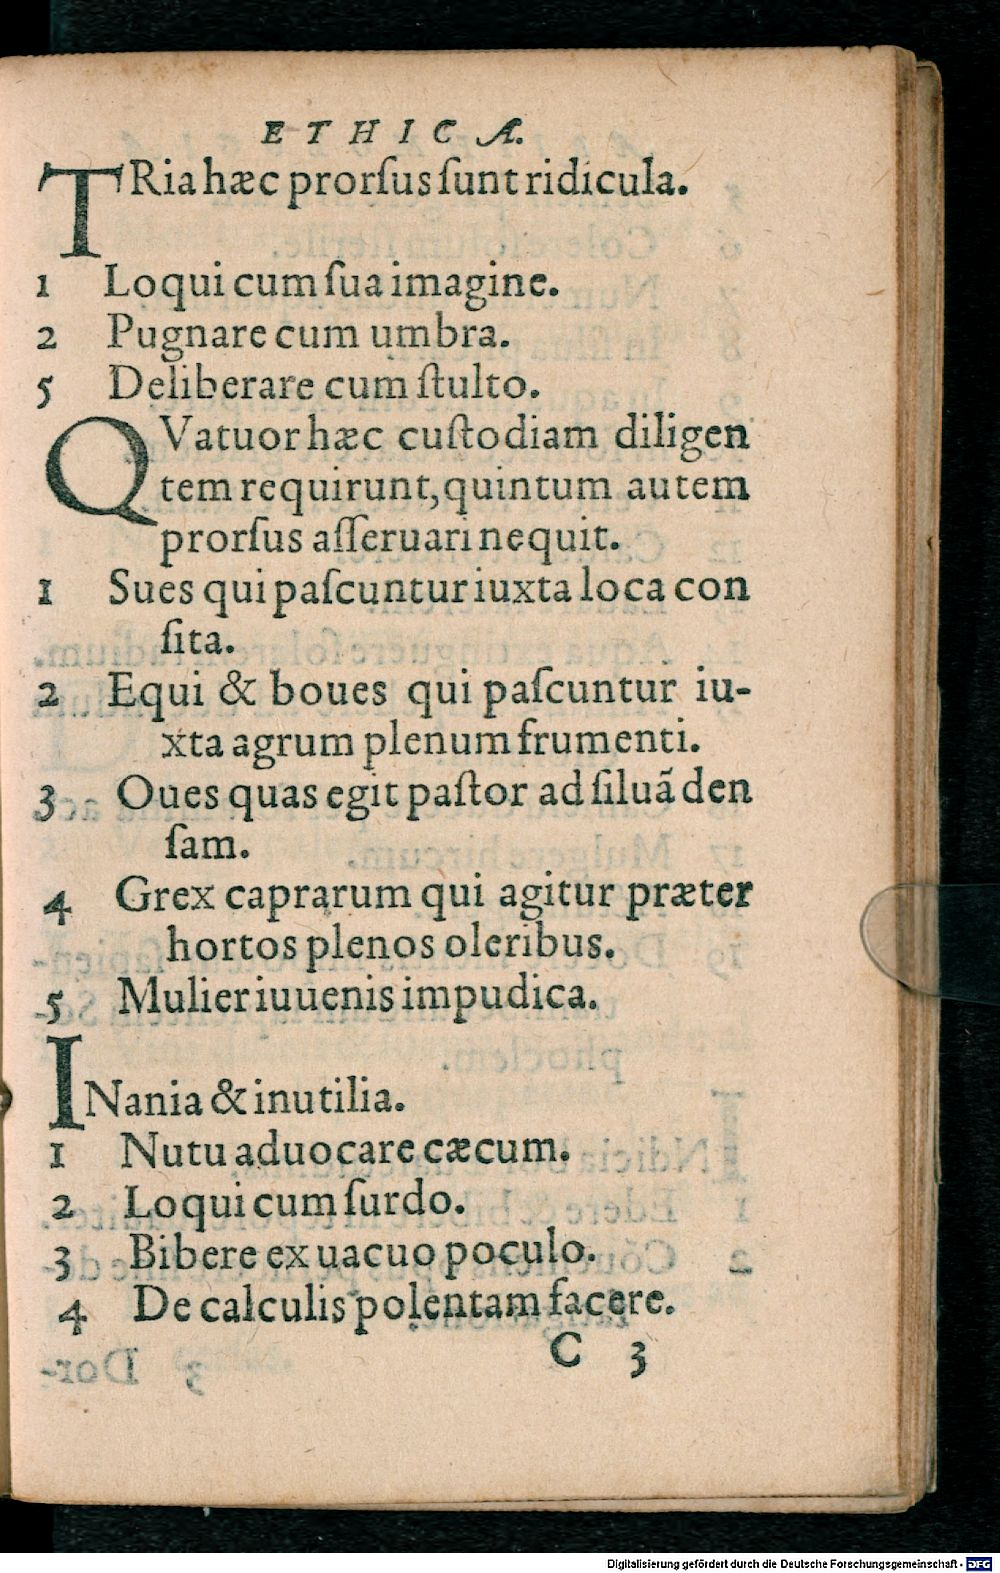 ETHICA.
TRia hæc prorſus ſunt ridicula.
1 Loqui cum ſua imagine.
2 Pugnare cum umbra.
5 Deliberare cum ſtulto.
QVatuor hæc cuſtodiam diligen
tem requirunt, quintum autem
prorſus aſſeruari nequit.
1 Sues qui paſcuntur iuxta loca con
ſita.
2 Equi & boues qui paſcuntur iu-
xta agrum plenum frumenti.
3 Oues quas egit paſtor ad ſiluã den
ſam.
4 Grex caprarum qui agitur præter
hortos plenos oleribus.
5 Mulier iuuenis impudica.
INania & inutilia.
1 Nutu aduocare cæcum.
2 Loqui cum ſurdo.
3 Bibere ex uacuo poculo.
4 De calculis polentam facere.
C 3
Digitalisierung gefördert durch die Deutsche Forschungsgemeinschaft - DFG